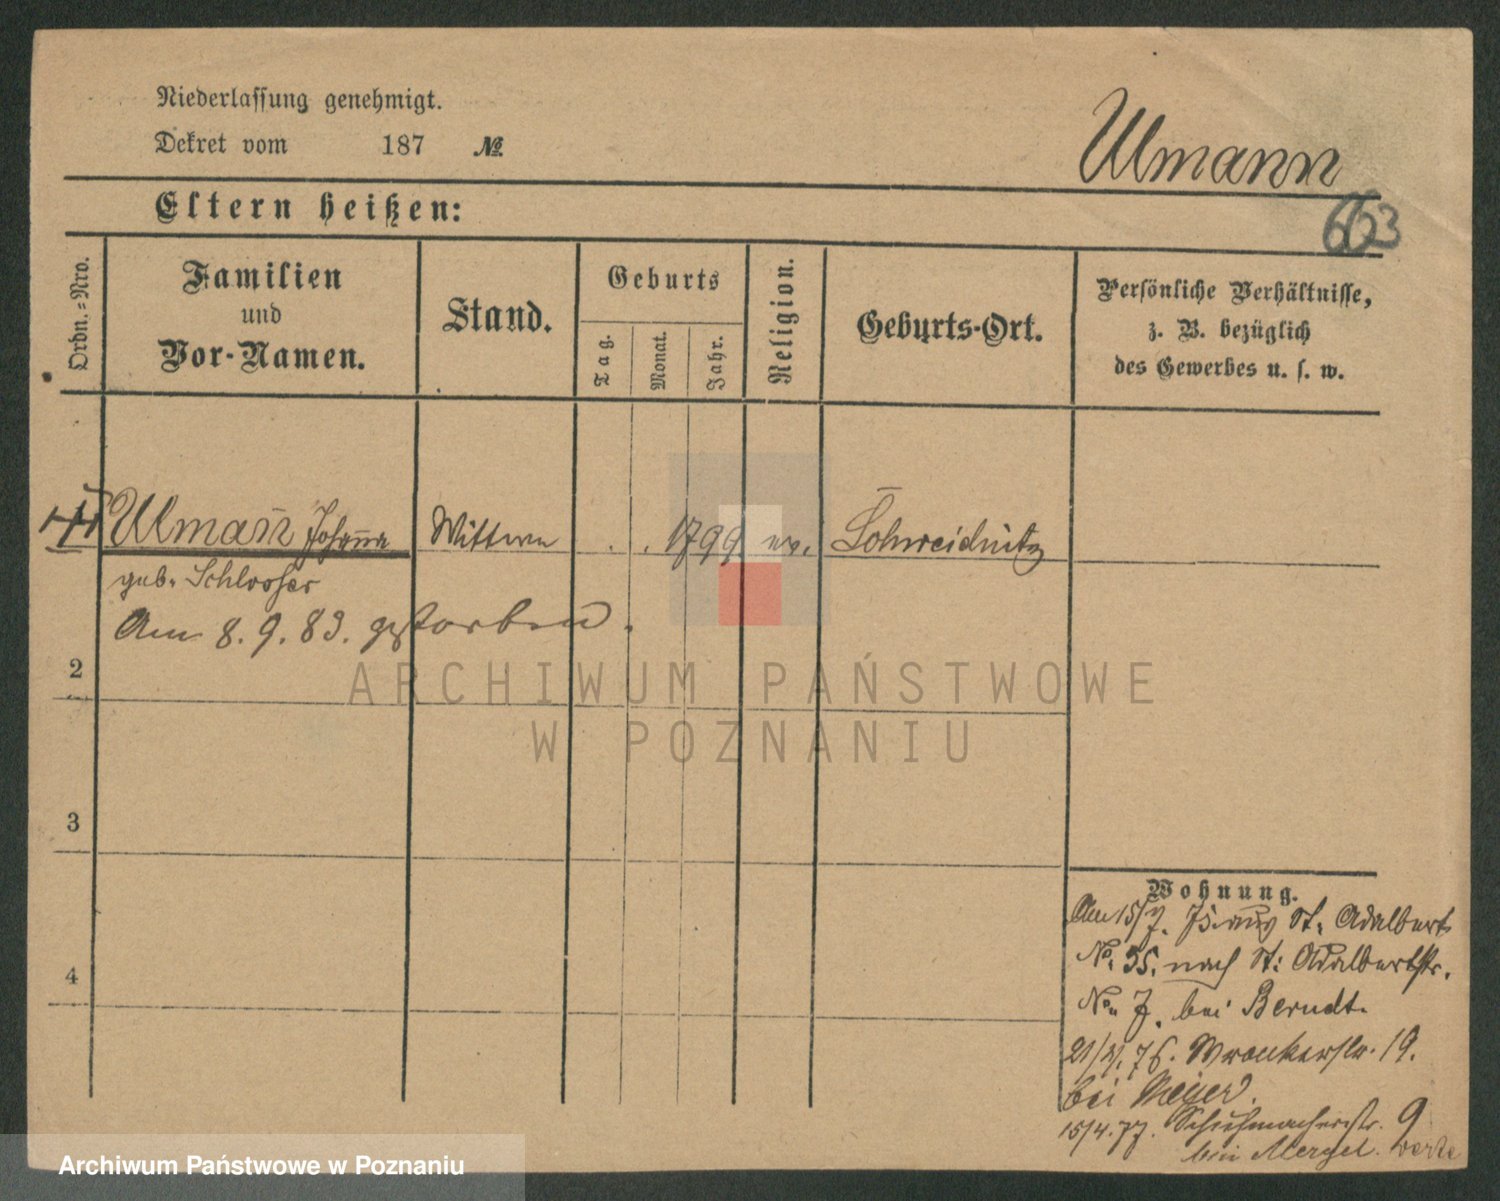 Niederlassung genehmigt.
Dekret vom 187 №
Ulmann
663
Eltern heißen:
Ordn.=Nro.
Familien
und
Vor-Namen.
Stand.
Geburts
Tag.
Monat.
Jahr.
Religion.
Geburts-Ort.
Persönliche Verhältnisse,
z. B. bezüglich
des Gewerbes u. s. w.
Ulmañ Johanna Wittwe . . 1799 ev. Schweidnitz
geb. Schlosser
Am 8. 9. 83. gestorben.
2
3
4
Wohnung.
Am 15/7. 75 aus St. Adalbert
No. 35. nach St: Adalbertstr.
No. 7. bei Berndt.
76. Wronkerstr. 19.
bei Meyer.
15/4. 77. Schuhmacherstr. 9
bei Mergel.
ARCHIWUM PAŃSTWOWE
W POZNANIU
Archiwum Państwowe w Poznaniu